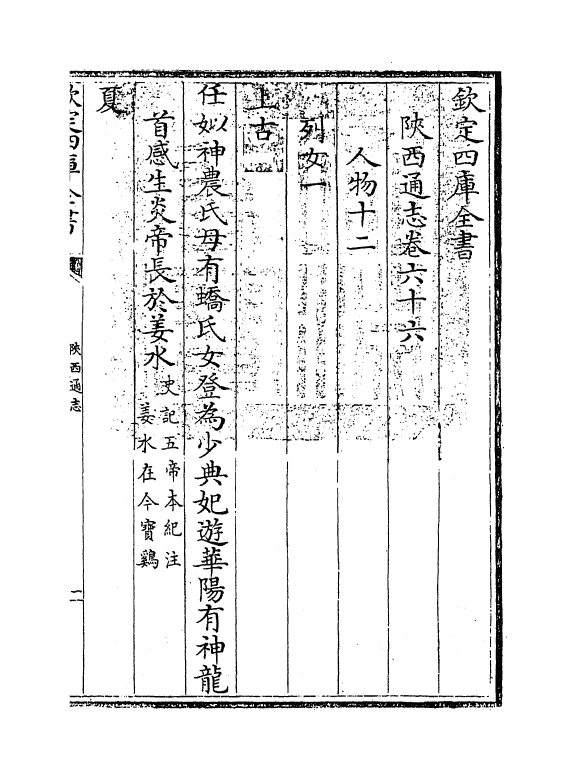 欽定四庫全書
陜西通志卷六十六
人物十二
列女一
上古
任姒神農氏母有蟜氏女登為少典妃遊華陽有神龍
首感生炎帝長於姜水史記五帝本紀注
姜水在今寶鷄
夏
欽定四庫全書
陜西通志